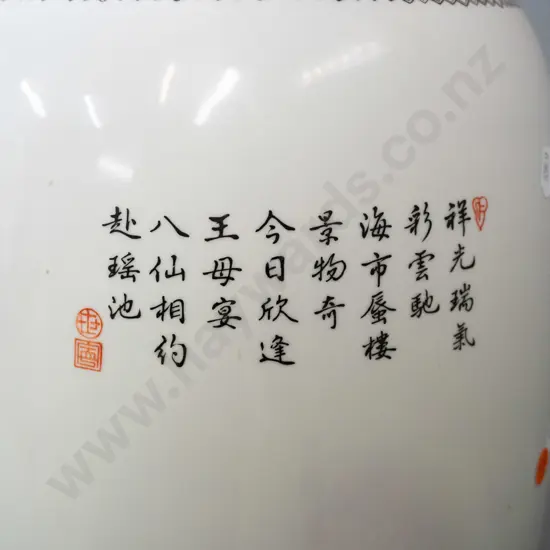 祥光瑞氣
彩雲馳
海市蜃樓
景物奇
今日欣逢
王母宴
八仙相約
赴瑤池
www.haywards.co.nz